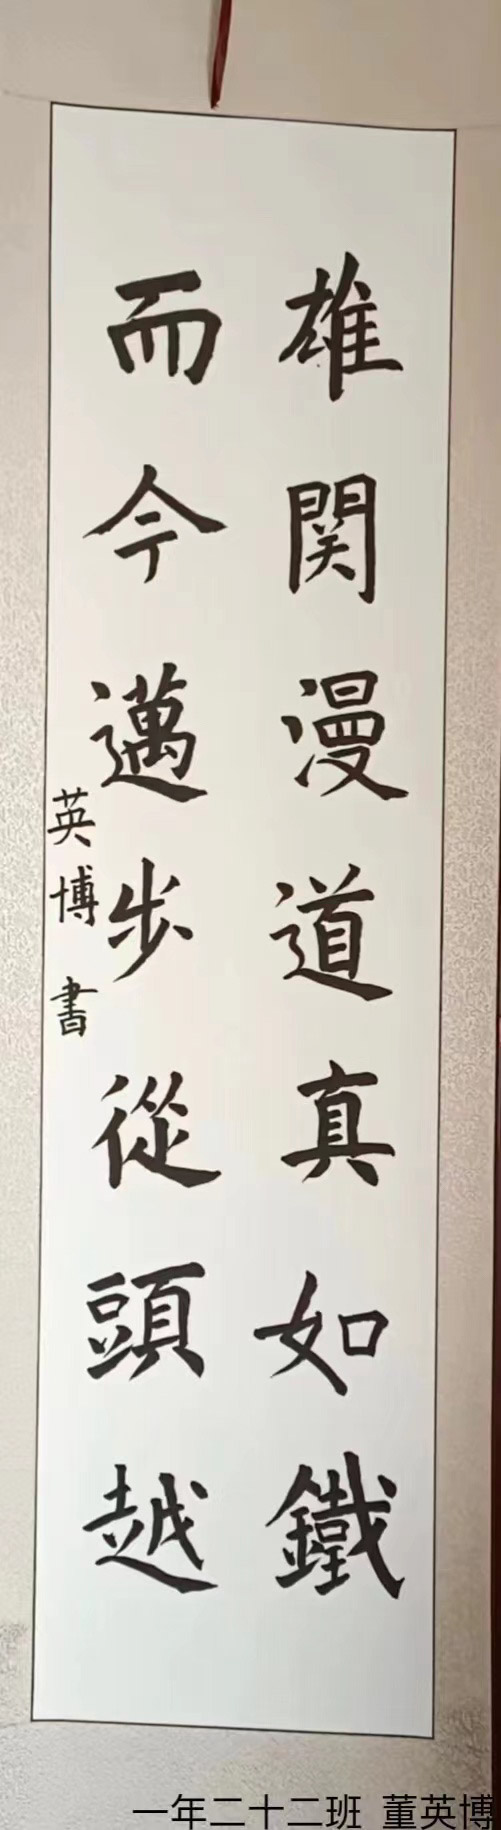 雄関漫道真如鐵
而今邁步從頭越
英博書
一年二十二班 董英博